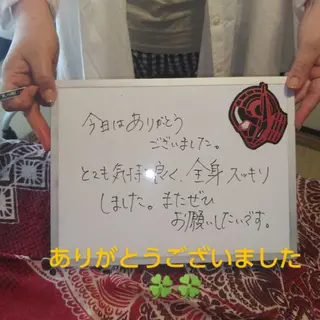 今日はありがとう
ございました。
とても気持良く、全身スッキリ
しました。またぜひ
お願いしたいです。
ありがとうございました